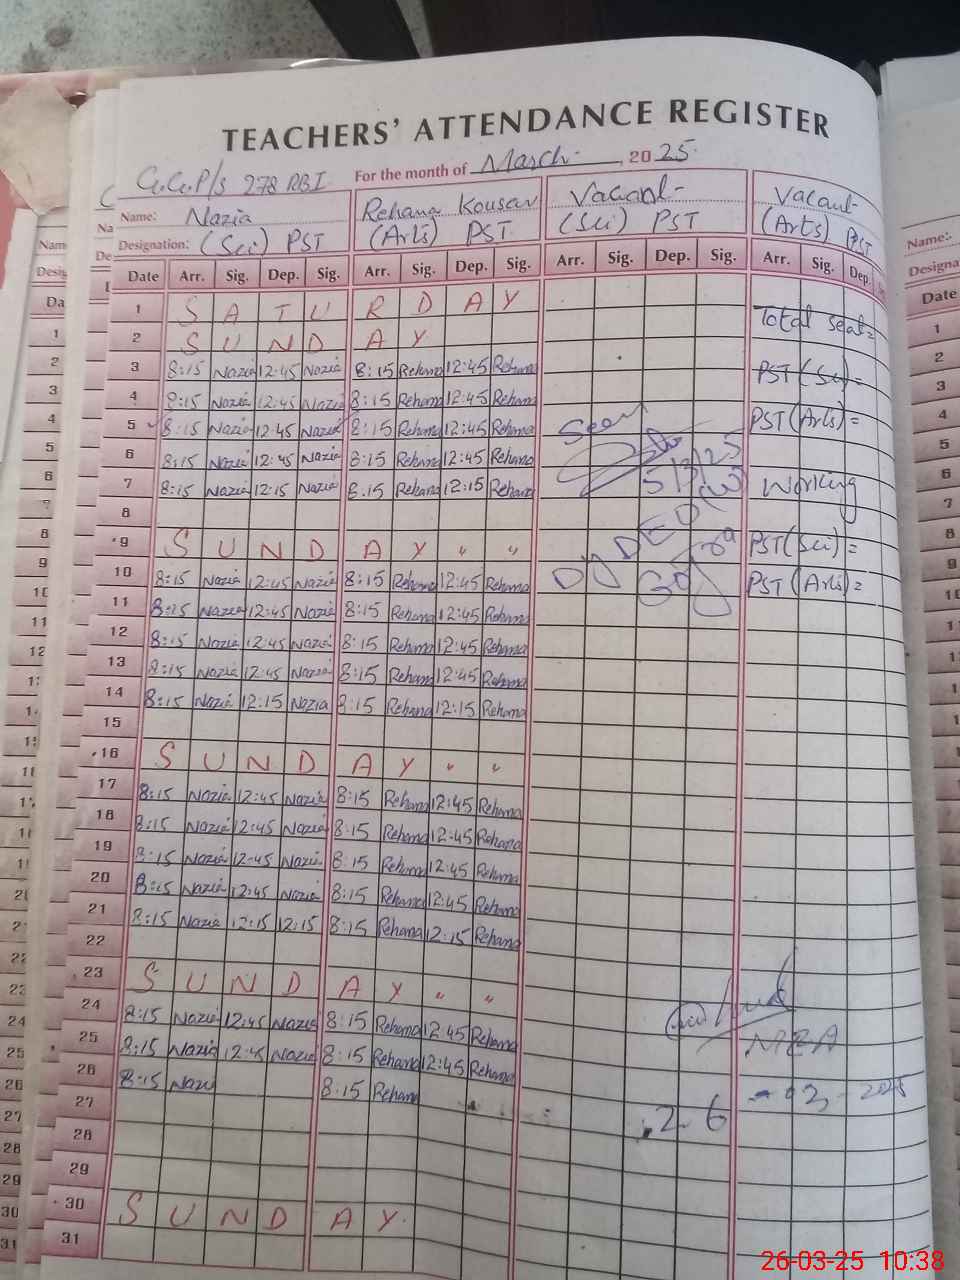 TEACHERS' ATTENDANCE REGISTER
G.G.P/S 278 RBI For the month of March , 2025
Name: Nazia Rehana Kousar Vacant Vacant
Designation: (Sci) PST (Arts) PST (Sci) PST (Arts) PST
Date Arr. Sig. Dep. Sig. Arr. Sig. Dep. Sig. Arr. Sig. Dep. Sig. Arr. Sig. Dep.
1 S A T U R D A Y Total seat=
2 S U N D A Y
3 8:15 Nazia 12:45 Nazia 8:15 Rehana 12:45 Rehana PST (Sci) =
4 8:15 Nazia 12:45 Nazia 8:15 Rehana 12:45 Rehana PST (Arts) =
5 8:15 Nazia 12:45 Nazia 8:15 Rehana 12:45 Rehana Seen
6 8:15 Nazia 12:45 Nazia 8:15 Rehana 12:45 Rehana 5/3/25 Working
7 8:15 Nazia 12:15 Nazia 8:15 Rehana 12:15 Rehana
8 Dy DEO (W)
9 S U N D A Y " " PST (Sci) =
10 8:15 Nazia 12:45 Nazia 8:15 Rehana 12:45 Rehana Gojra PST (Arts) =
11 8:15 Nazia 12:45 Nazia 8:15 Rehana 12:45 Rehana
12 8:15 Nazia 12:45 Nazia 8:15 Rehana 12:45 Rehana
13 8:15 Nazia 12:45 Nazia 8:15 Rehana 12:45 Rehana
14 8:15 Nazia 12:15 Nazia 8:15 Rehana 12:15 Rehana
15
16 S U N D A Y " "
17 8:15 Nazia 12:45 Nazia 8:15 Rehana 12:45 Rehana
18 8:15 Nazia 12:45 Nazia 8:15 Rehana 12:45 Rehana
19 8:15 Nazia 12:45 Nazia 8:15 Rehana 12:45 Rehana
20 8:15 Nazia 12:45 Nazia 8:15 Rehana 12:45 Rehana
21 8:15 Nazia 12:15 12:15 8:15 Rehana 12:15 Rehana
22
23 S U N D A Y " "
24 8:15 Nazia 12:45 Nazia 8:15 Rehana 12:45 Rehana
25 8:15 Nazia 12:45 Nazia 8:15 Rehana 12:45 Rehana MEA
26 8:15 Nazia 8:15 Rehana
27 26-03-2025
28
29
30 S U N D A Y
31
26-03-25 10:38